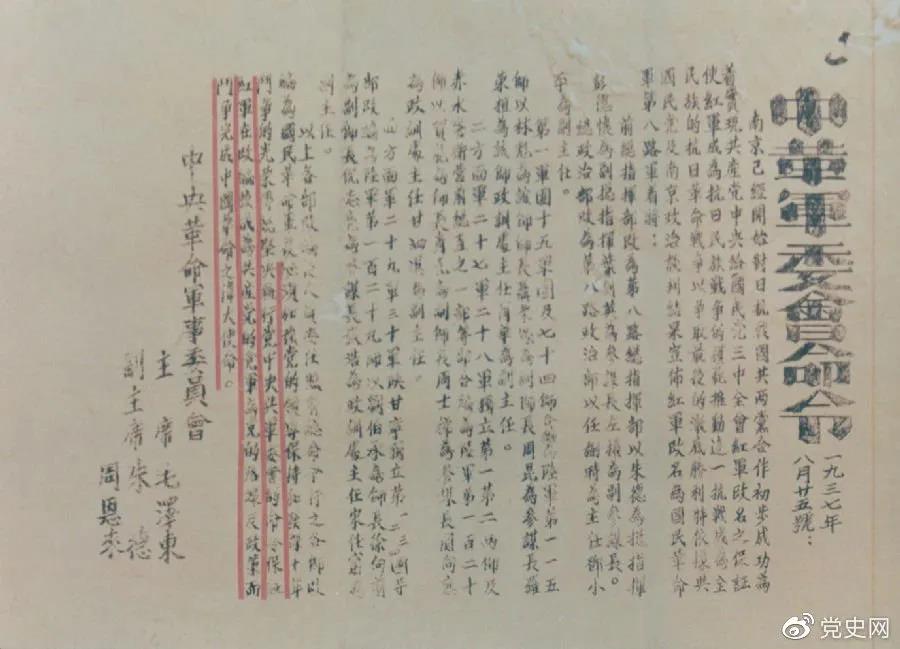 中華軍委會命令
一九三七年
八月廿五號：
南京已經開始對日抗戰國共兩黨合作初步成功為
着實現共產党中央給國民党三中全會紅軍改名之保証
使紅軍成為抗日民族戰爭的模範推動這一抗戰成為全
民族的抗日革命戰爭以爭取最後的澈底勝利特依據與
國民党及南京政治談判結果宣佈紅軍改名為國民革命
軍第八路軍着將：
前總指揮部改為第八路總指揮部以朱德為總指揮
彭德懷為副總指揮葉劍英為參謀長左權為副參謀長。
總政治部改為第八路政治部以任弼時為主任鄧小
平為副主任。
第一軍團十五軍團及七十四師 陸軍第一一五
師以林彪為該師師長聶榮臻為副師長周昆為參謀長羅
榮桓為該師政訓處主任蕭華為副主任。
二方面軍二十七軍二十八軍獨立第一第二兩師及
赤水 總直之一部等部合編為陸軍第一百二十
師以賀龍為師長蕭克為副師長周士第為參謀長關向應
為政訓處主任甘泗淇為副主任。
四方面軍二十九軍三十軍陝甘寧獨立第一二三四
部改編為陸軍第一百二十九師以劉伯承為師長徐向前
為副師長倪志亮為參謀長張浩為政訓處主任宋任窮為
副主任。
以上各部改編 之各部改
編為國民革命軍後必須加強党的領導保持 十年
鬥爭的光榮 堅決執行党中央與軍委會的命令保証
紅軍在改編後成為共產党的党軍為党的路線及政策而
鬥爭完成中國革命之偉大使命。
中央革命軍事委員會
主席 毛澤東
副主席 朱德
周恩來
党史网